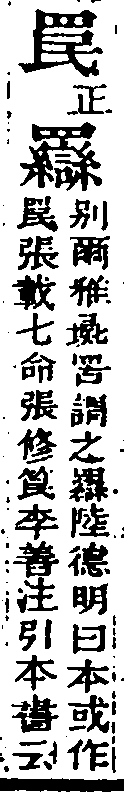 罠
正
羉
別爾雅彘罟謂之羉陸德明曰本或作
罠張載七命張修罠李善注引本書云